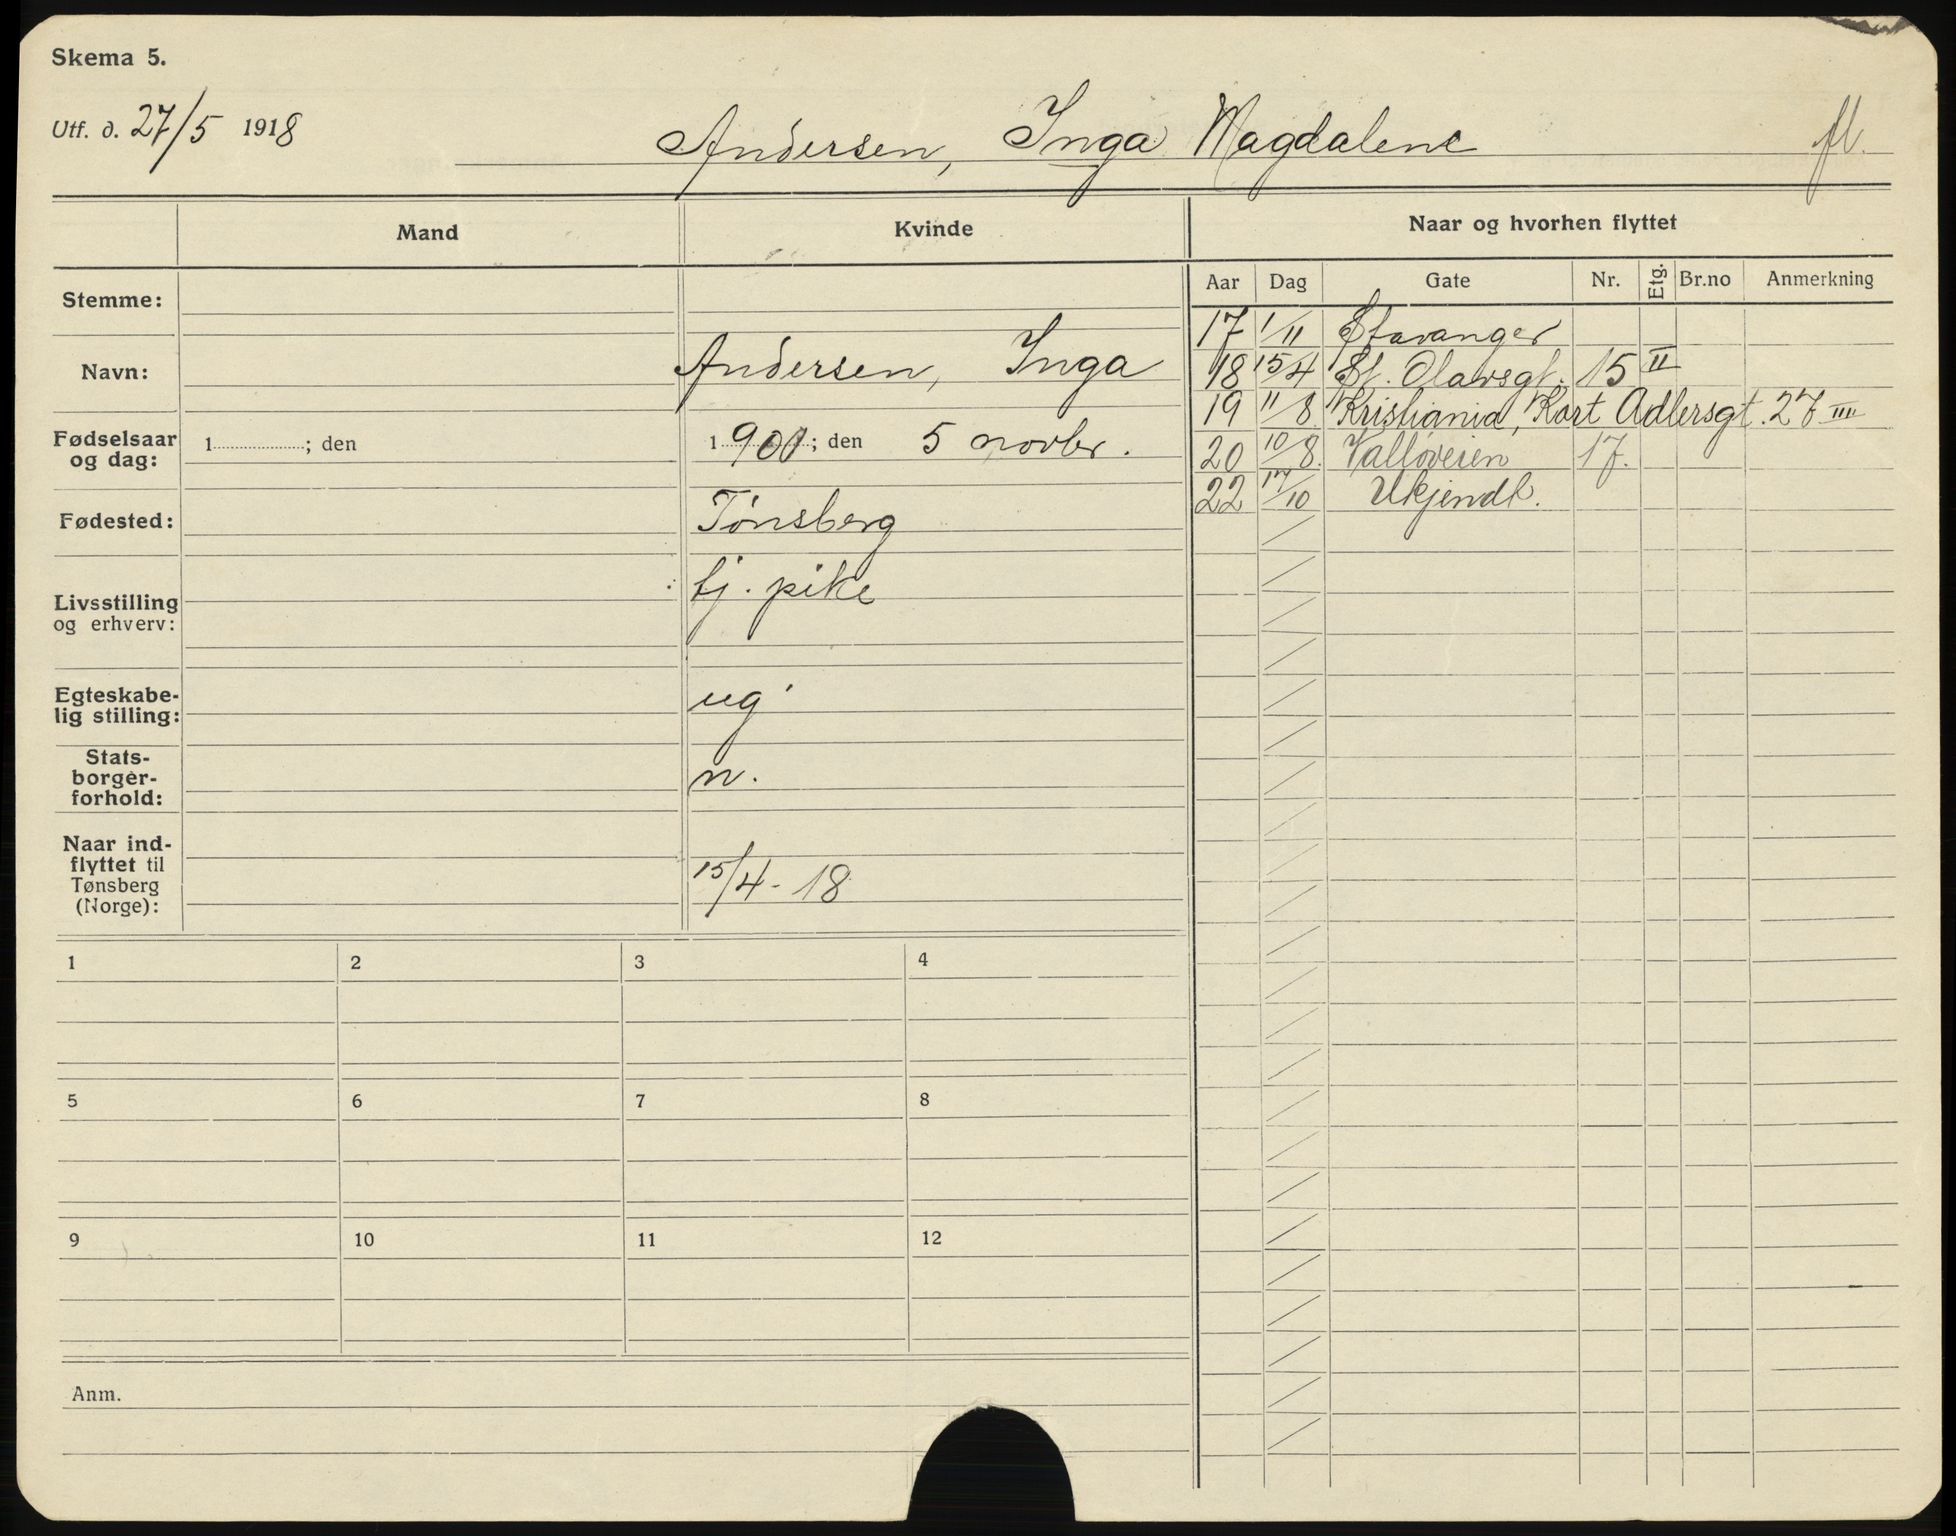 Skema 5.
Utf. d. 27/5 1918
Andersen, Inga Magdalene fl.
Mand Kvinde Naar og hvorhen flyttet
Aar Dag Gate Nr. Etg. Br.no Anmerkning
Stemme:
Navn: Andersen, Inga
Fødselsaar og dag: 1 ; den 1900 ; den 5 novbr.
Fødested: Tønsberg
Livsstilling og erhverv: tj. pike
Egteskabe-
lig stilling: ug
Stats-
borger-
forhold: n.
Naar ind-
flyttet til
Tønsberg
(Norge): 15/4 - 18
17 1/11 Stavanger
18 15/4 St. Olavsgt. 15 II
19 11/8 Kristiania, Kort Adlersgt. 27 IIII
20 10/8 Valløveien 17.
22 17/10 Ukjendt.
1 2 3 4
5 6 7 8
9 10 11 12
Anm.